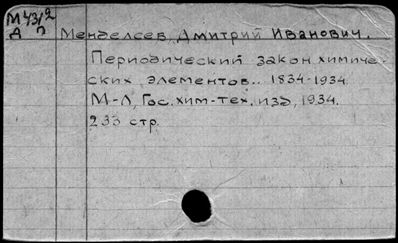 М 43/2
Д П
Менделеев, Дмитрий Иванович.
Периодический закон химиче-
ских элементов.. 1834-1934.
М-Л, Гос. хим-тех. изд, 1934.
233 стр.